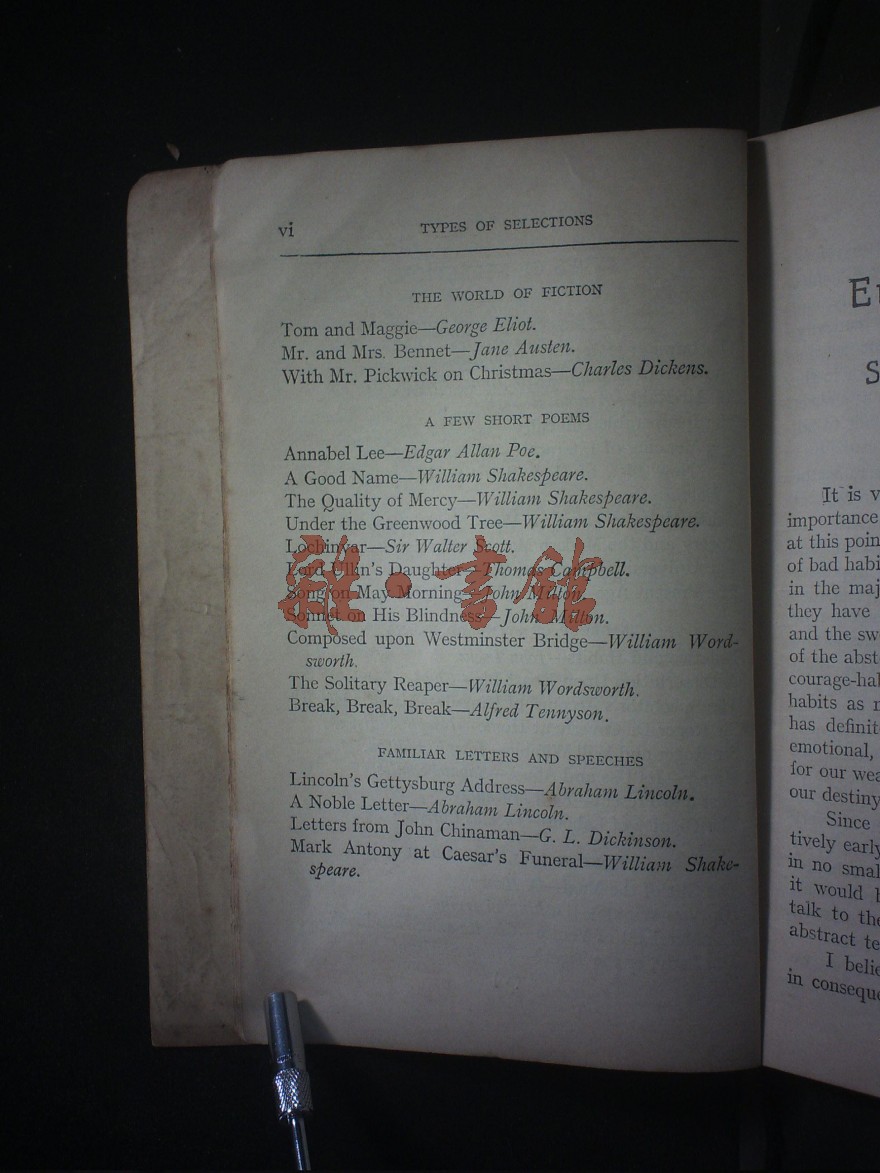 vi
TYPES OF SELECTIONS
THE WORLD OF FICTION
Tom and Maggie—George Eliot.
Mr. and Mrs. Bennet—Jane Austen.
With Mr. Pickwick on Christmas—Charles Dickens.
A FEW SHORT POEMS
Annabel Lee—Edgar Allan Poe.
A Good Name—William Shakespeare.
The Quality of Mercy—William Shakespeare.
Under the Greenwood Tree—William Shakespeare.
Lochinvar—Sir Walter Scott.
Lord Ullin's Daughter—Thomas Campbell.
Song on May Morning—John Milton.
Sonnet on His Blindness—John Milton.
Composed upon Westminster Bridge—William Word-
sworth.
The Solitary Reaper—William Wordsworth.
Break, Break, Break—Alfred Tennyson.
FAMILIAR LETTERS AND SPEECHES
Lincoln's Gettysburg Address—Abraham Lincoln.
A Noble Letter—Abraham Lincoln.
Letters from John Chinaman—G. L. Dickinson.
Mark Antony at Caesar's Funeral—William Shake-
speare.
雜·書館
It is
importance
at this
of bad
in the
they have
and the
of the
habits as
has
emotional,
for our
our destiny
Since
tively early
in no
it would
talk to
abstract
I
in